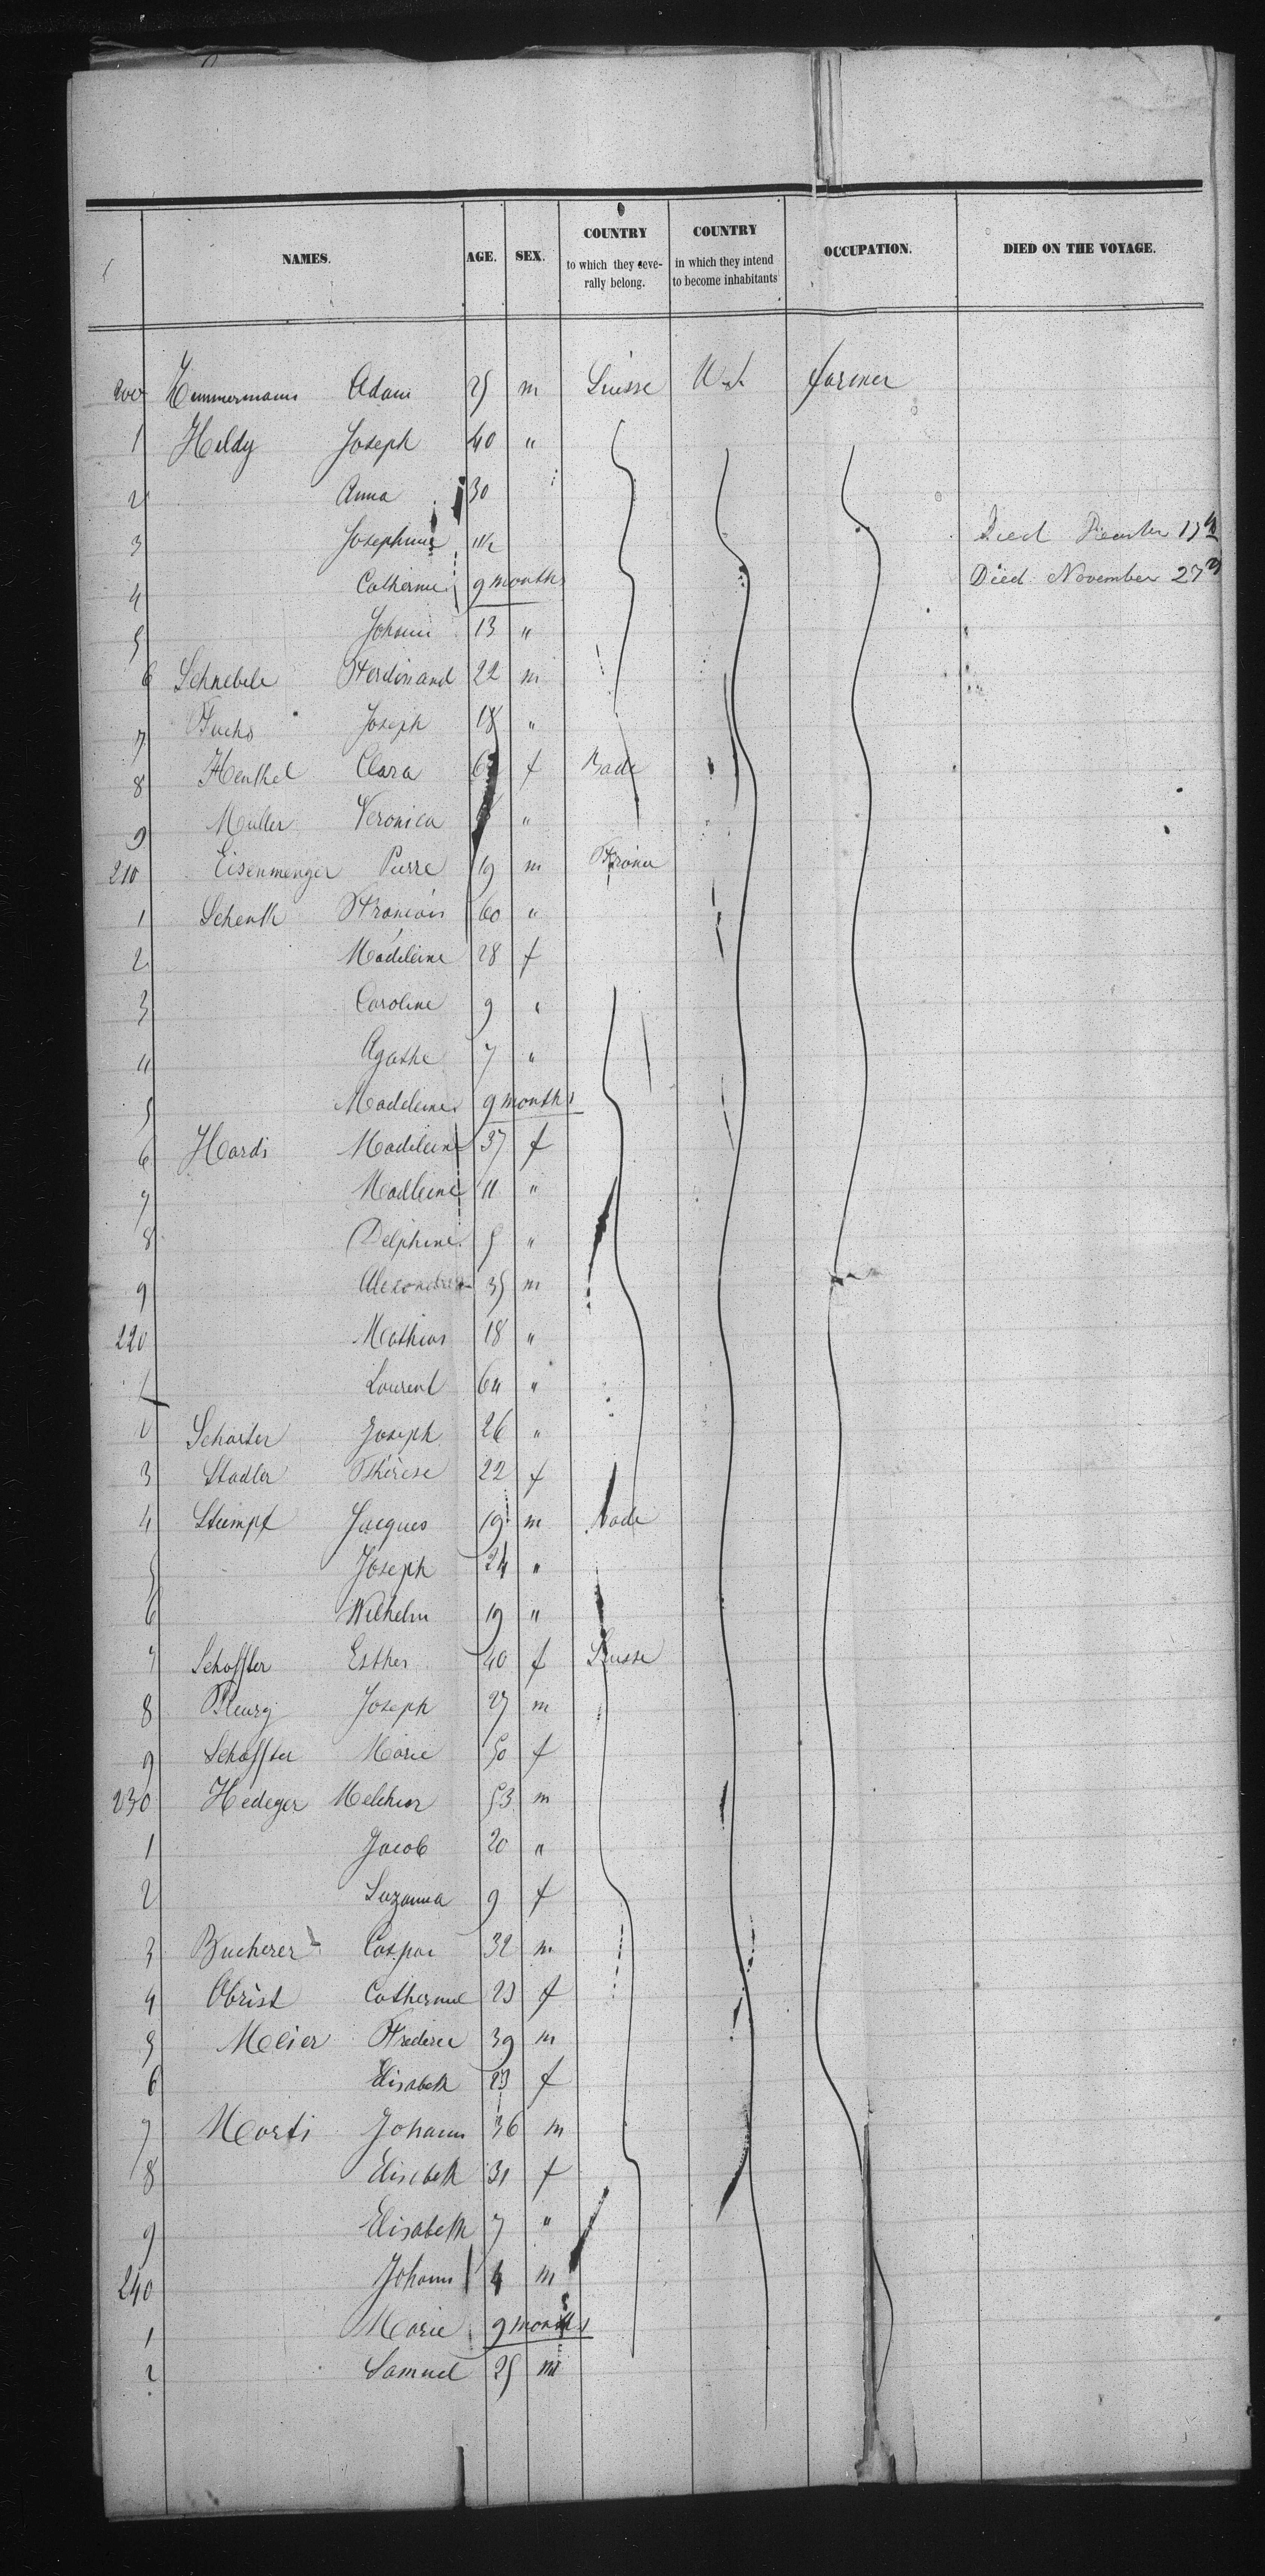 NAMES. AGE. SEX. COUNTRY to which they seve- rally belong. COUNTRY in which they intend to become inhabitants OCCUPATION. DIED ON THE VOYAGE.
200 Zimmermann Adam 25 m Suisse farmer
1 Hildy Joseph 40 "
2 Anna 30
3 Josephine 11/2 Died 17th
4 Catherine 9 months Died November 27th
5 Johann 13 "
6 Schnebele Ferdinand 22 m
7 Fuchs Joseph 18 "
8 Henkel Clara f Bade
9 Müller Veronica "
210 Eisenmenger Pierre 19 m France
1 Schenk François 60 "
2 Madeleine 28 f
3 Caroline 9 "
4 Agathe 7 "
5 Madeleine 9 months
6 Hardi Madeleine 37 f
7 Madleine 11 "
8 Delphine 5 "
9 Alexandre 35 m
220 Mathias 18 "
1 Laurent 64 "
2 Joseph 26 "
3 Stadler Thérèse 22 f
4 Stumpf Jacques 19 m Bade
5 Joseph 24 "
6 Wilhelm 19 "
7 Schaffter Esther 40 f Suisse
8 Fleury Joseph 27 m
9 Schaffter Marie 50 f
230 Hedeger Melchior 53 m
1 Jacob 20 "
2 Suzanna 9 f
3 Bucherer Caspar 32 m
4 Obrist Catherine 23 f
5 Meier Frederic 39 m
6 Elisabeth 23 f
7 Marti Johann 36 m
8 Elisabeth 31 f
9 Elisabeth 7 "
240 Johann 4 m
1 Marie 9 months
2 Samuel 25 m